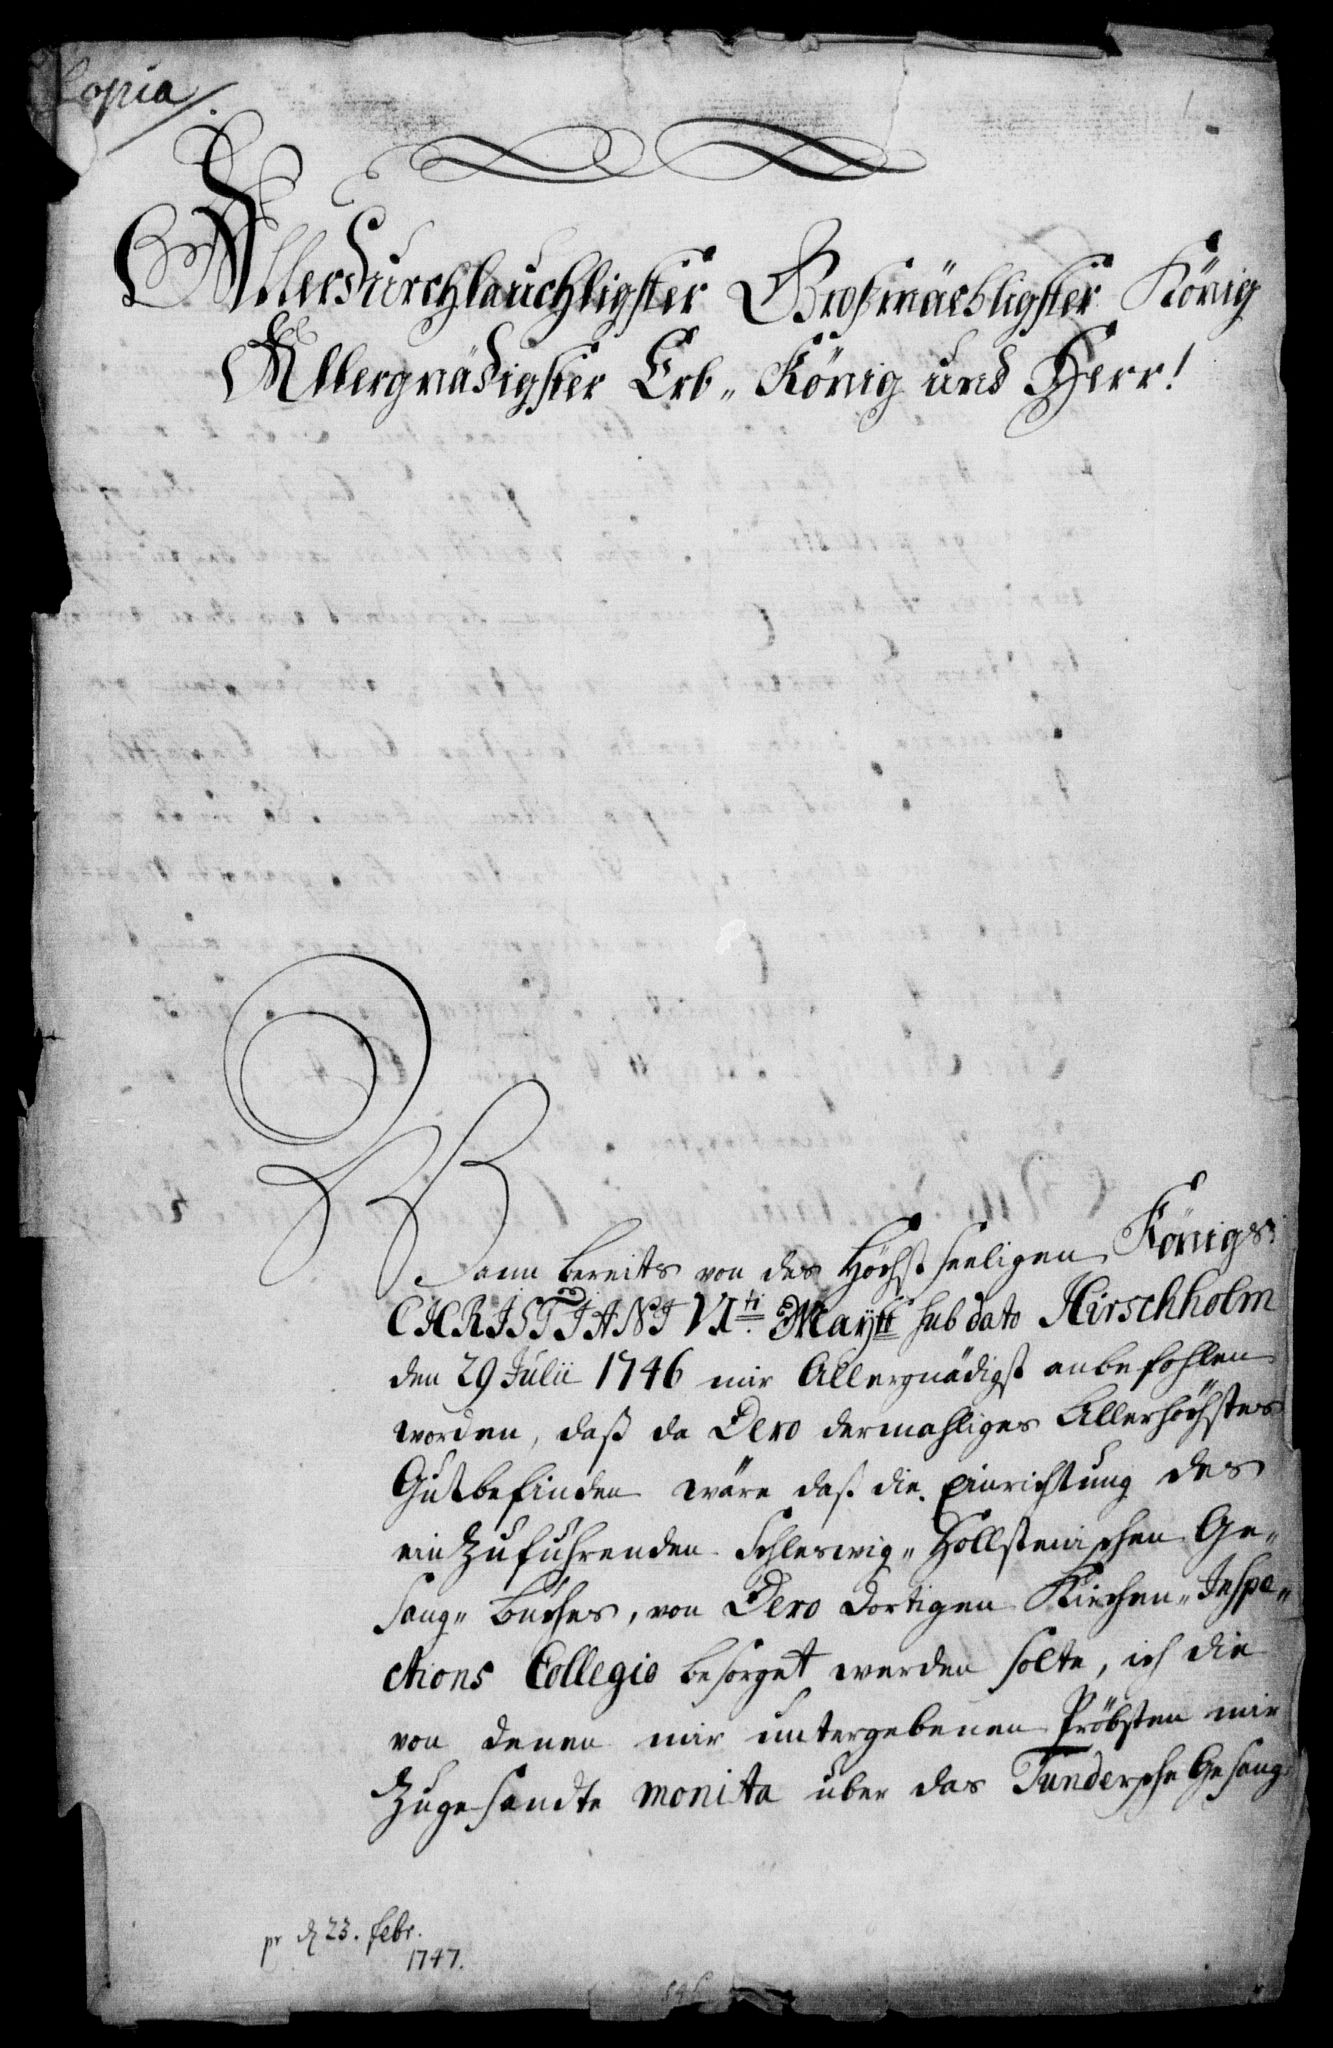 Copia
Allerdurchlauchtigster Großmächtigster König
Allergnädigster Erb„ König und Herr!
Wann bereits von des Höchst seeligen Königs
CHRISTIANI VIti Maytt sub dato Hirschholm
den 29 Julii 1746 mir Allergnädigst anbefohlen
worden, daß da Dero dermahliges Allerhöchstes
Gutbefinden wäre daß die Einrichtung des
einzuführenden Schleswig„ Hollsteinischen Ge„
sang„ Buches, von Dero dortigen Kirchen„ Inspe„
ctions Collegio besorget werden solte, ich die
von denen mir untergebenen Pröbsten mir
zugesandte monita über das Tundersche Gesang
pr d 23. febr.
1747.